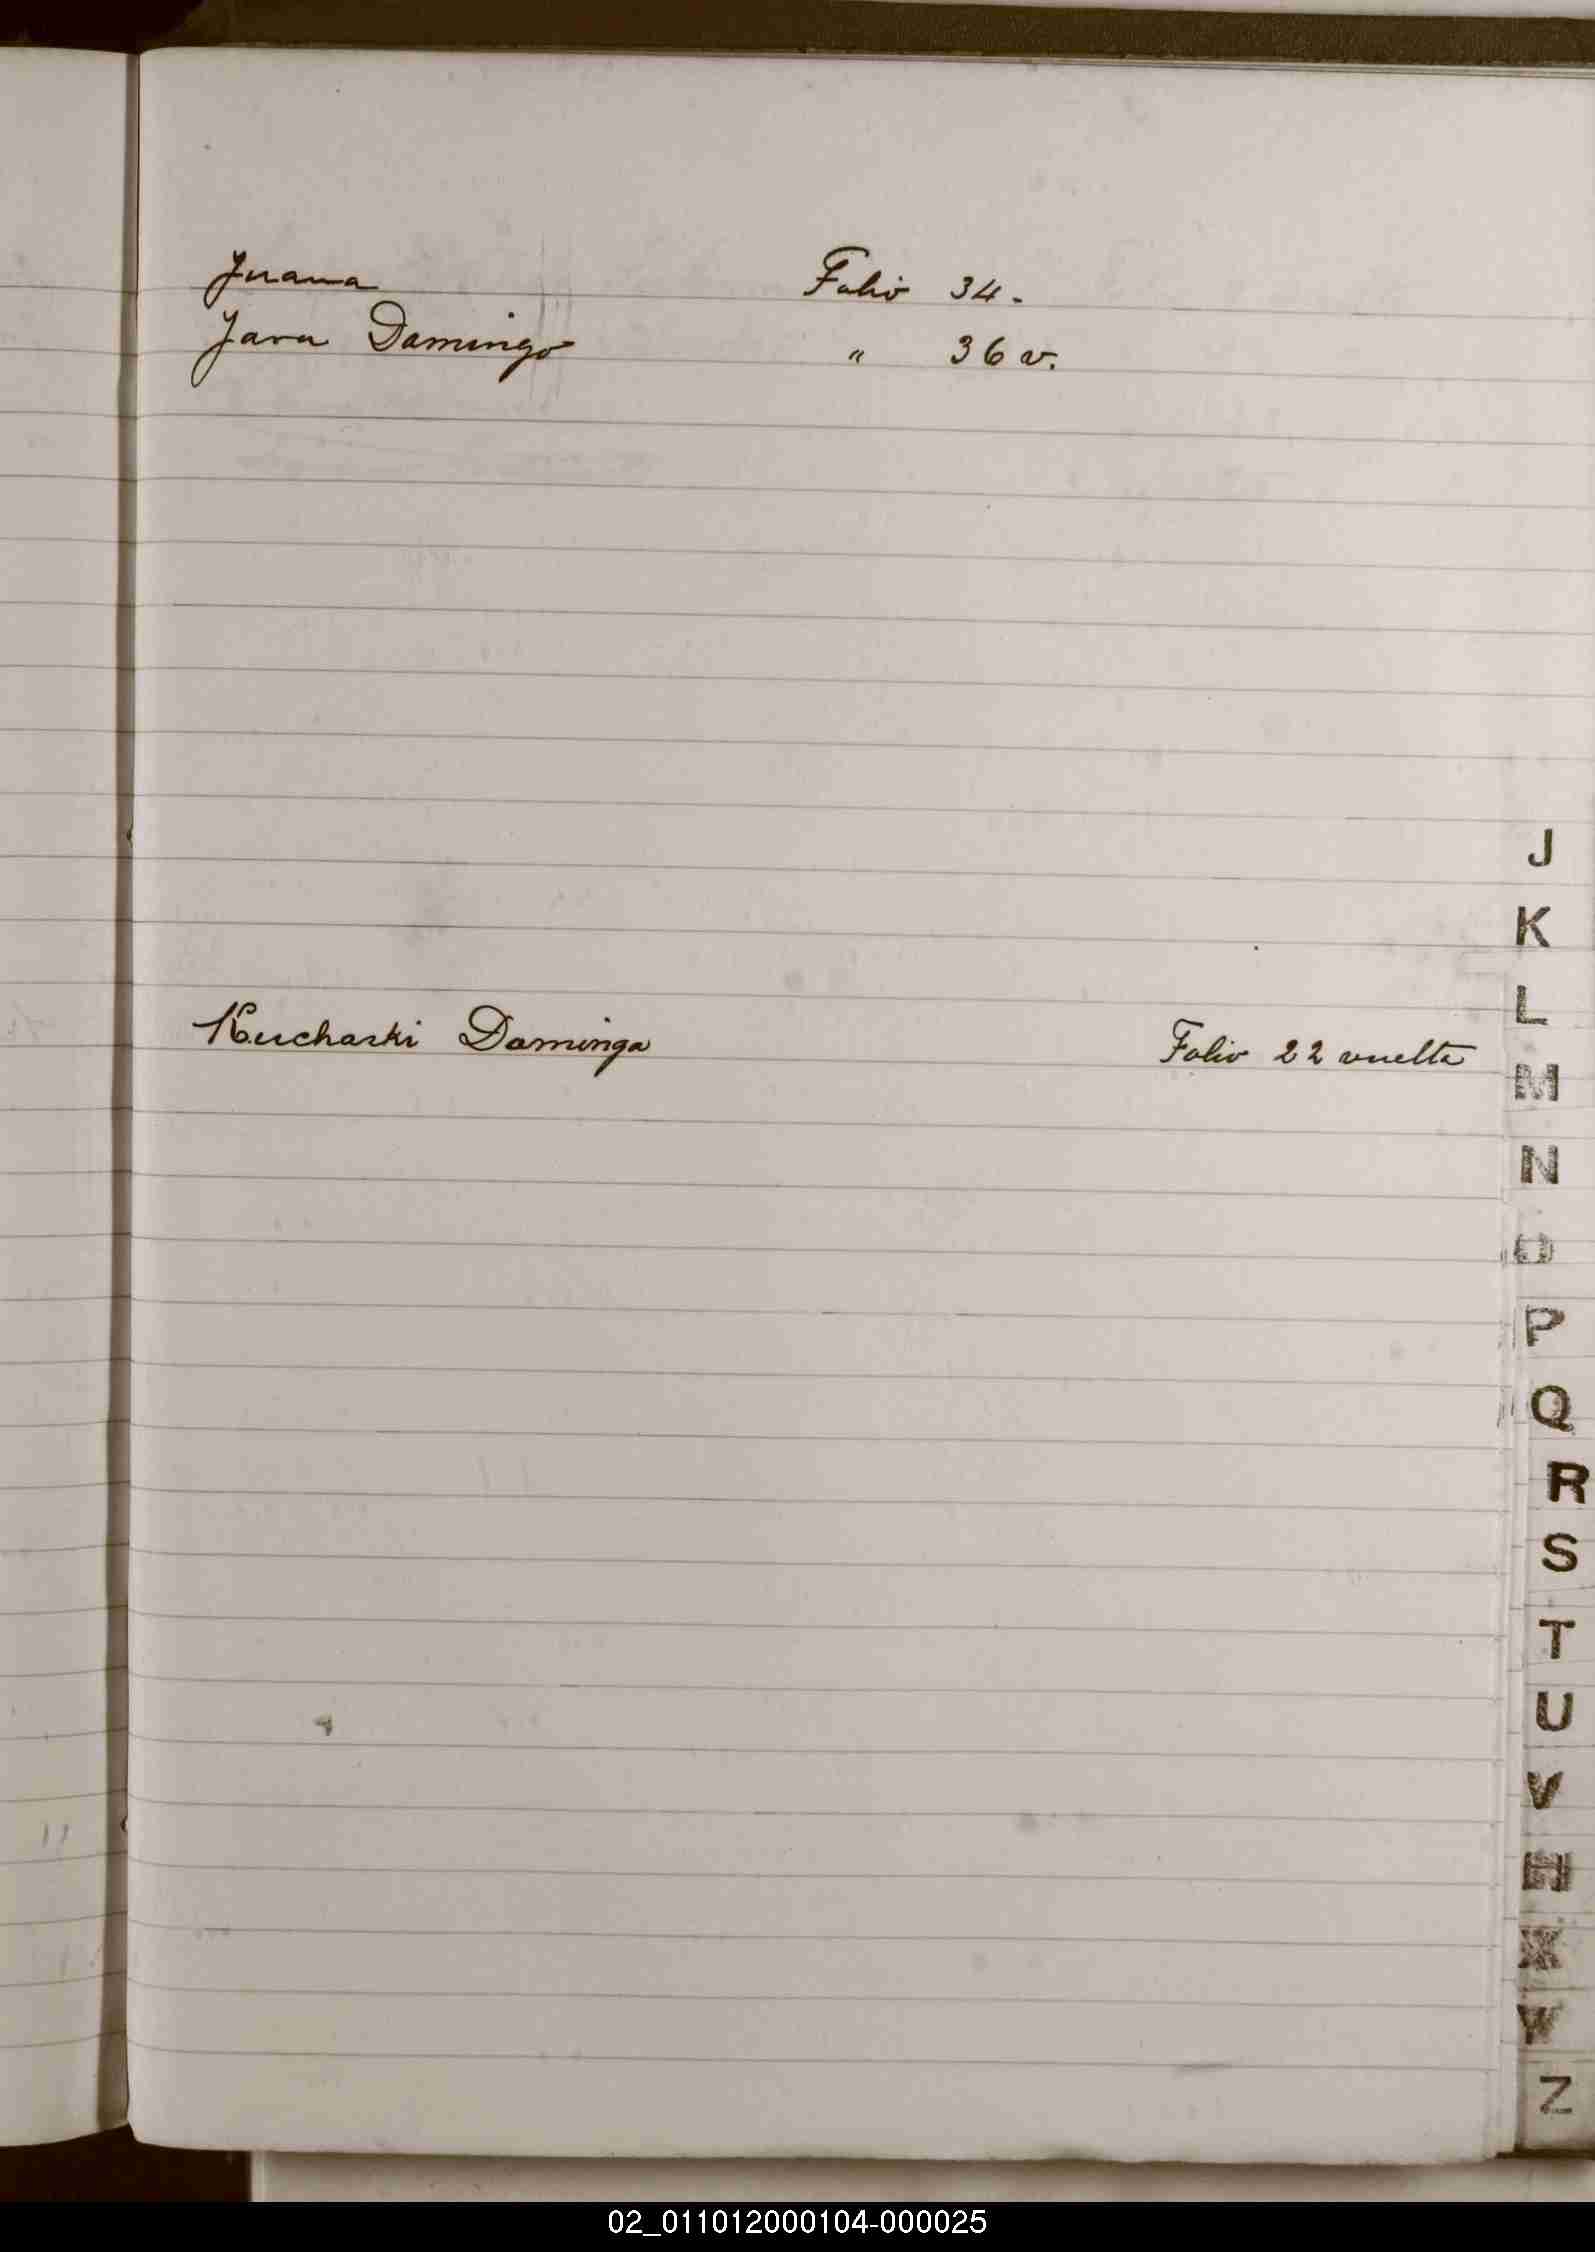 Juana Folio 34.
Jara Domingo " 36 v.
Kucharki Dominga Folio 22 vuelta
J
K
L
M
N
O
P
Q
R
S
T
U
V
H
X
W
Z
02_011012000104-000025